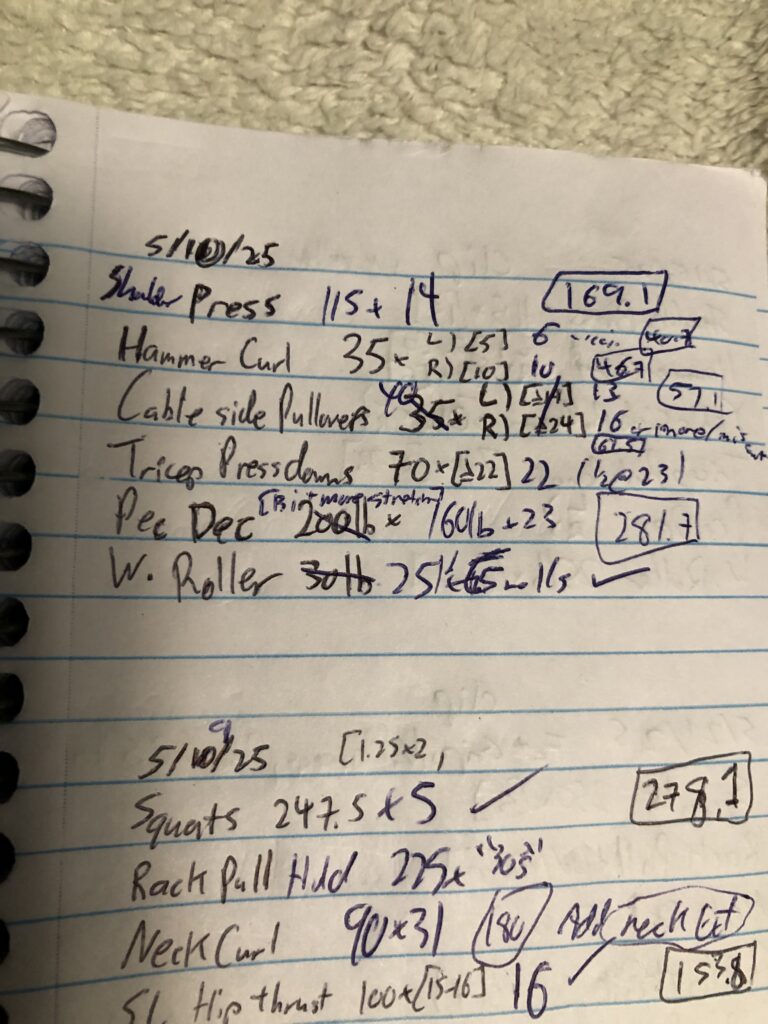 5/10/25
Press 115 x 14 169.1
Hammer Curl 35 x L) [5] 6
R) [10] 10 46.7
Cable side Pullovers 40 35 x L) 13 57.1
R) [≥24] 16 67.5
Tricep Pressdowns 70 x [≥22] 22 (1/2@23)
Pec Dec 200lb x 160lb x 23 281.7
W. Roller 30lb 25 ✓
5/9/25 [1.25x2,
Squats 247.5 x 5 ✓ 278.1
Rack Pull Hold 225x "30s"
Neck Curl 90x31 180 Add neck Ext
SL Hip thrust 100x[15-16] 16 ✓ 153.8